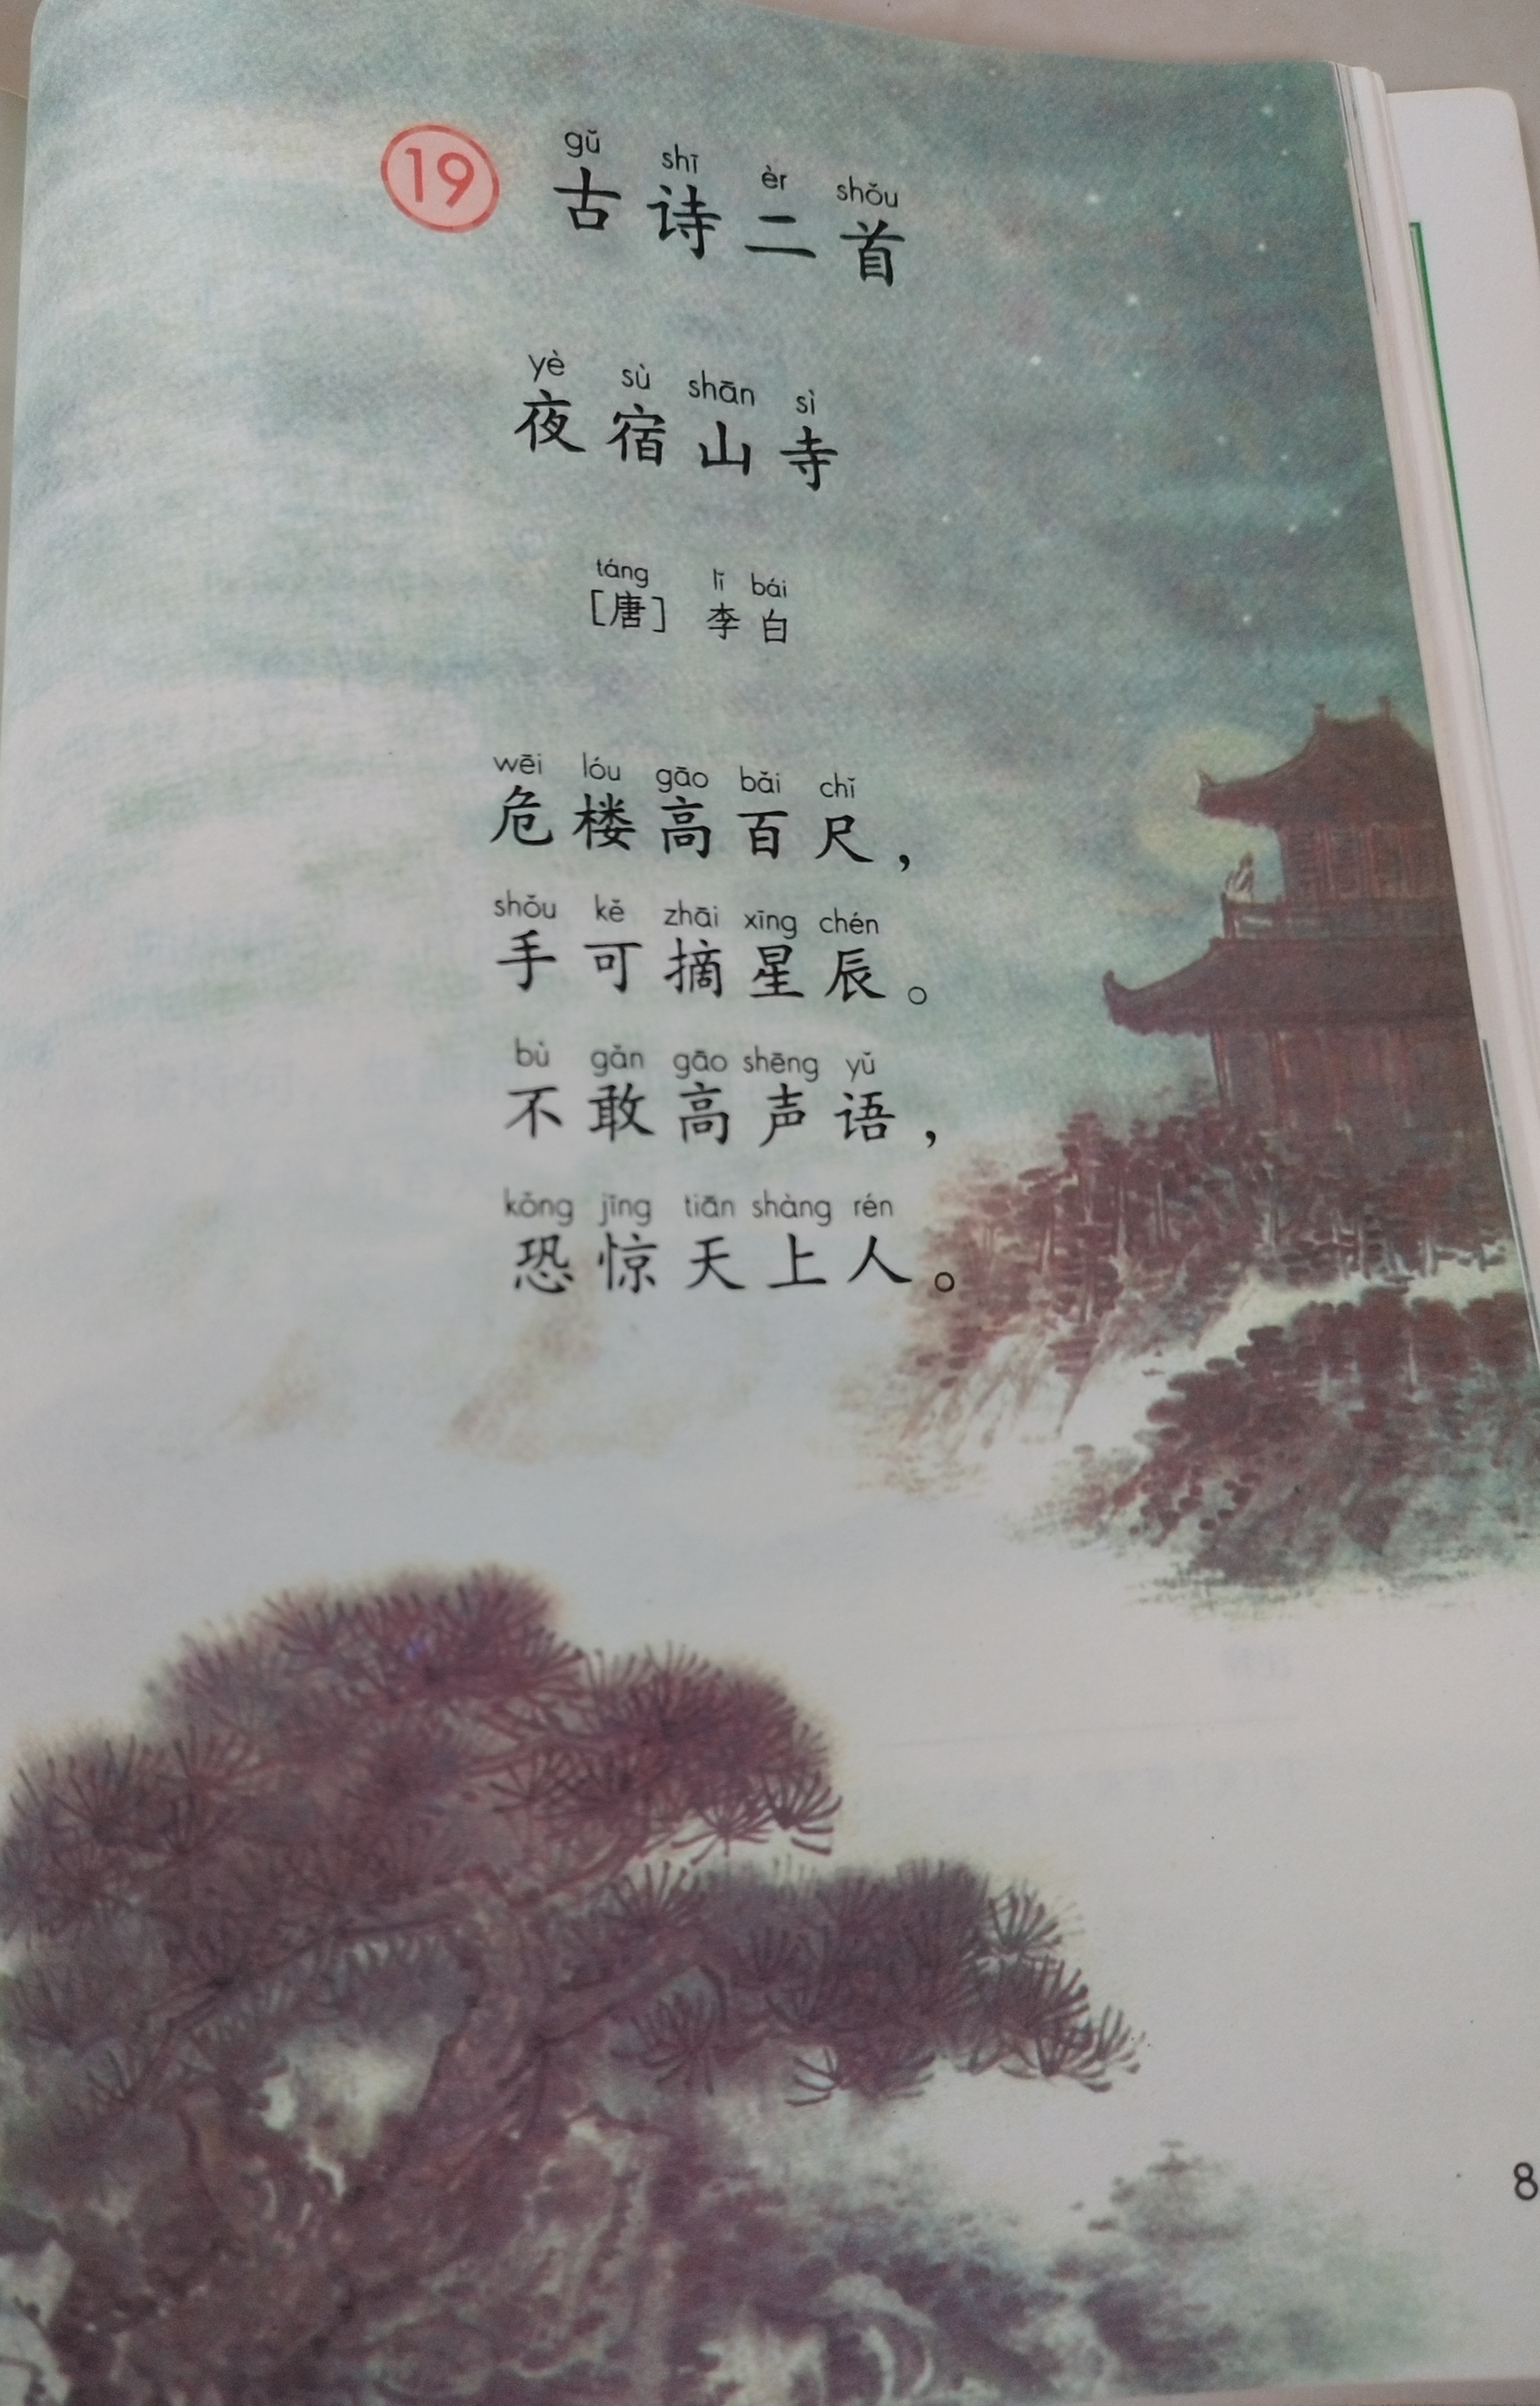 19
gǔ shī èr shǒu
古诗二首
yè sù shān sì
夜宿山寺
táng lǐ bái
［唐］ 李白
wēi lóu gāo bǎi chǐ
危楼高百尺，
shǒu kě zhāi xīng chén
手可摘星辰。
bù gǎn gāo shēng yǔ
不敢高声语，
kǒng jīng tiān shàng rén
恐惊天上人。
8